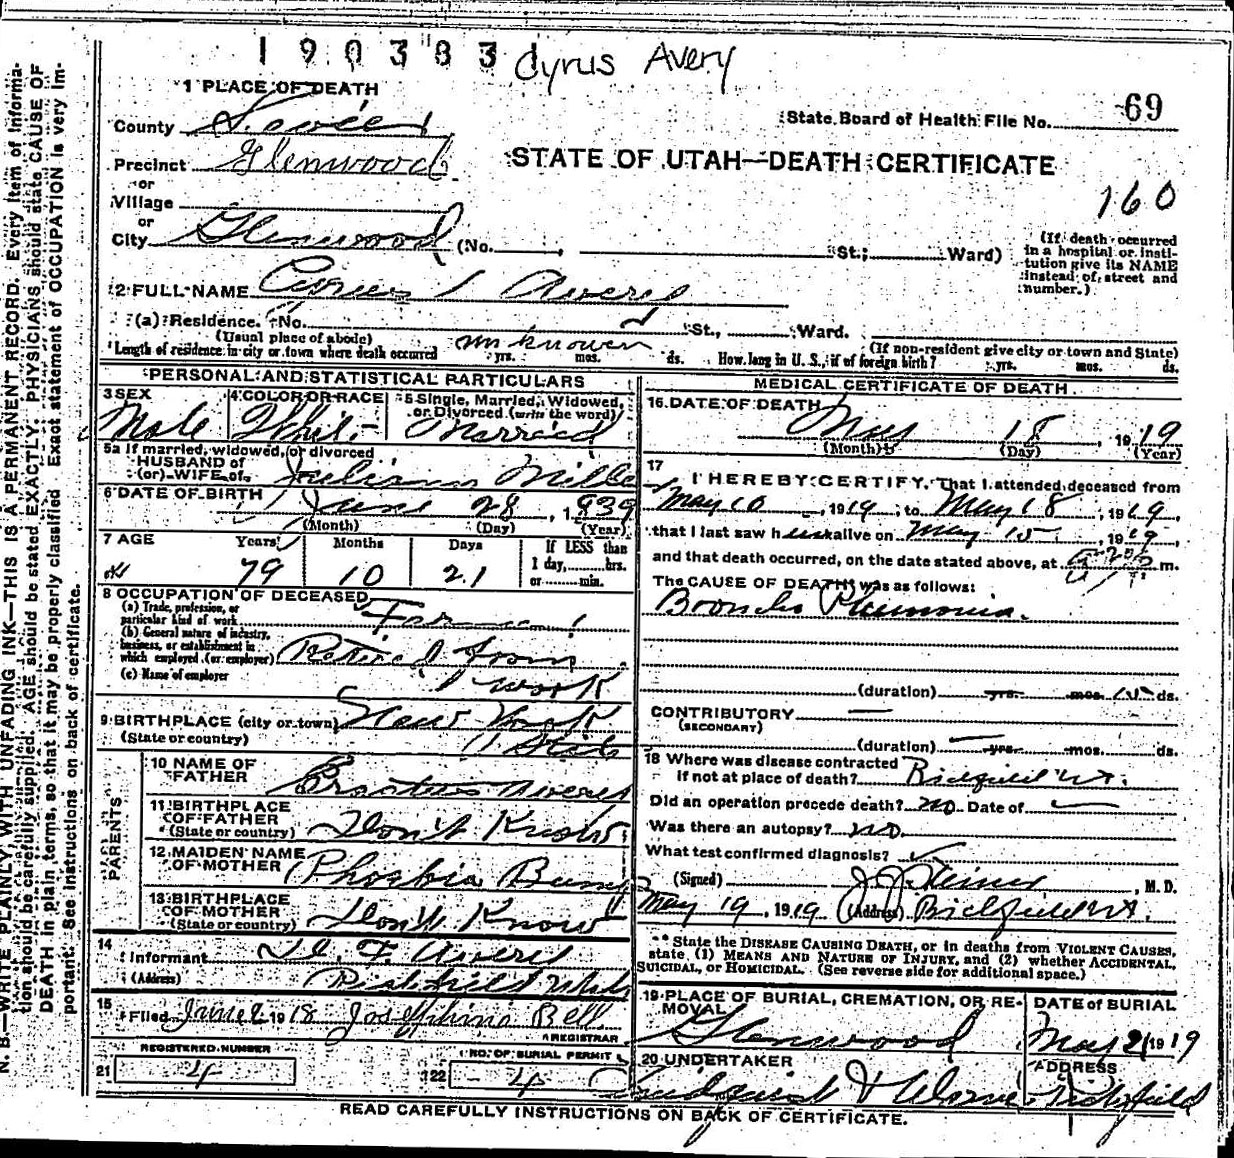 190383 Cyrus Avery
1 PLACE OF DEATH
County Sevier
State Board of Health File No. 69
Precinct Glenwood
STATE OF UTAH—DEATH CERTIFICATE
or
Village
160
or
City Glenwood (No. , St.; Ward)
(If death occurred in a hospital or institution give its NAME instead of street and number.)
2 FULL NAME Cyrus Avery
(a) Residence. No. St., Ward.
(Usual place of abode) (If non-resident give city or town and State)
Length of residence in city or town where death occurred unknown yrs. mos. ds. How long in U. S., if of foreign birth? yrs. mos. ds.
PERSONAL AND STATISTICAL PARTICULARS
3 SEX Male
4 COLOR OR RACE White
5 Single, Married, Widowed, or Divorced (write the word) Married
5a If married, widowed, or divorced
HUSBAND of
(or) WIFE of
6 DATE OF BIRTH June 28, 1839
(Month) (Day) (Year)
7 AGE Years Months Days If LESS than
79 10 21 1 day, hrs.
or min.
8 OCCUPATION OF DECEASED
(a) Trade, profession, or
particular kind of work
(b) General nature of industry,
business, or establishment in
which employed (or employer) Retired from
(c) Name of employer work
9 BIRTHPLACE (city or town) New York
(State or country) State
PARENTS
10 NAME OF
FATHER Avery
11 BIRTHPLACE
OF FATHER
(State or country) Don't Know
12 MAIDEN NAME
OF MOTHER
13 BIRTHPLACE
OF MOTHER
(State or country) Don't Know
14
Informant F. Avery
(Address) Richfield Utah
15
Filed June 2 1918 Josephine Bell
REGISTRAR
21 REGISTERED NUMBER 4
22 NO. OF BURIAL PERMIT 4
MEDICAL CERTIFICATE OF DEATH
16 DATE OF DEATH
May 18, 1919
(Month) (Day) (Year)
17
I HEREBY CERTIFY, That I attended deceased from
May 10, 1919, to May 18, 1919,
that I last saw h alive on May 15, 1919,
and that death occurred, on the date stated above, at m.
The CAUSE OF DEATH was as follows:
Broncho Pneumonia.
(duration) yrs. mos. ds.
CONTRIBUTORY —
(SECONDARY)
(duration) yrs. mos. ds.
18 Where was disease contracted
if not at place of death? Richfield Ut.
Did an operation precede death? no Date of
Was there an autopsy? no
What test confirmed diagnosis?
(Signed) J. J. Steiner, M. D.
May 19, 1919 (Address) Richfield Ut.
* State the DISEASE CAUSING DEATH, or in deaths from VIOLENT CAUSES,
state (1) MEANS AND NATURE OF INJURY, and (2) whether ACCIDENTAL,
SUICIDAL, or HOMICIDAL. (See reverse side for additional space.)
19 PLACE OF BURIAL, CREMATION, OR RE-
MOVAL Glenwood
DATE of BURIAL
May 21 1919
20 UNDERTAKER
ADDRESS
Richfield
READ CAREFULLY INSTRUCTIONS ON BACK OF CERTIFICATE.
N. B.—WRITE PLAINLY, WITH UNFADING INK—THIS IS A PERMANENT RECORD. Every item of informa-
tion should be carefully supplied. AGE should be stated EXACTLY. PHYSICIANS should state CAUSE OF
DEATH in plain terms, so that it may be properly classified. Exact statement of OCCUPATION is very im-
portant. See instructions on back of certificate.